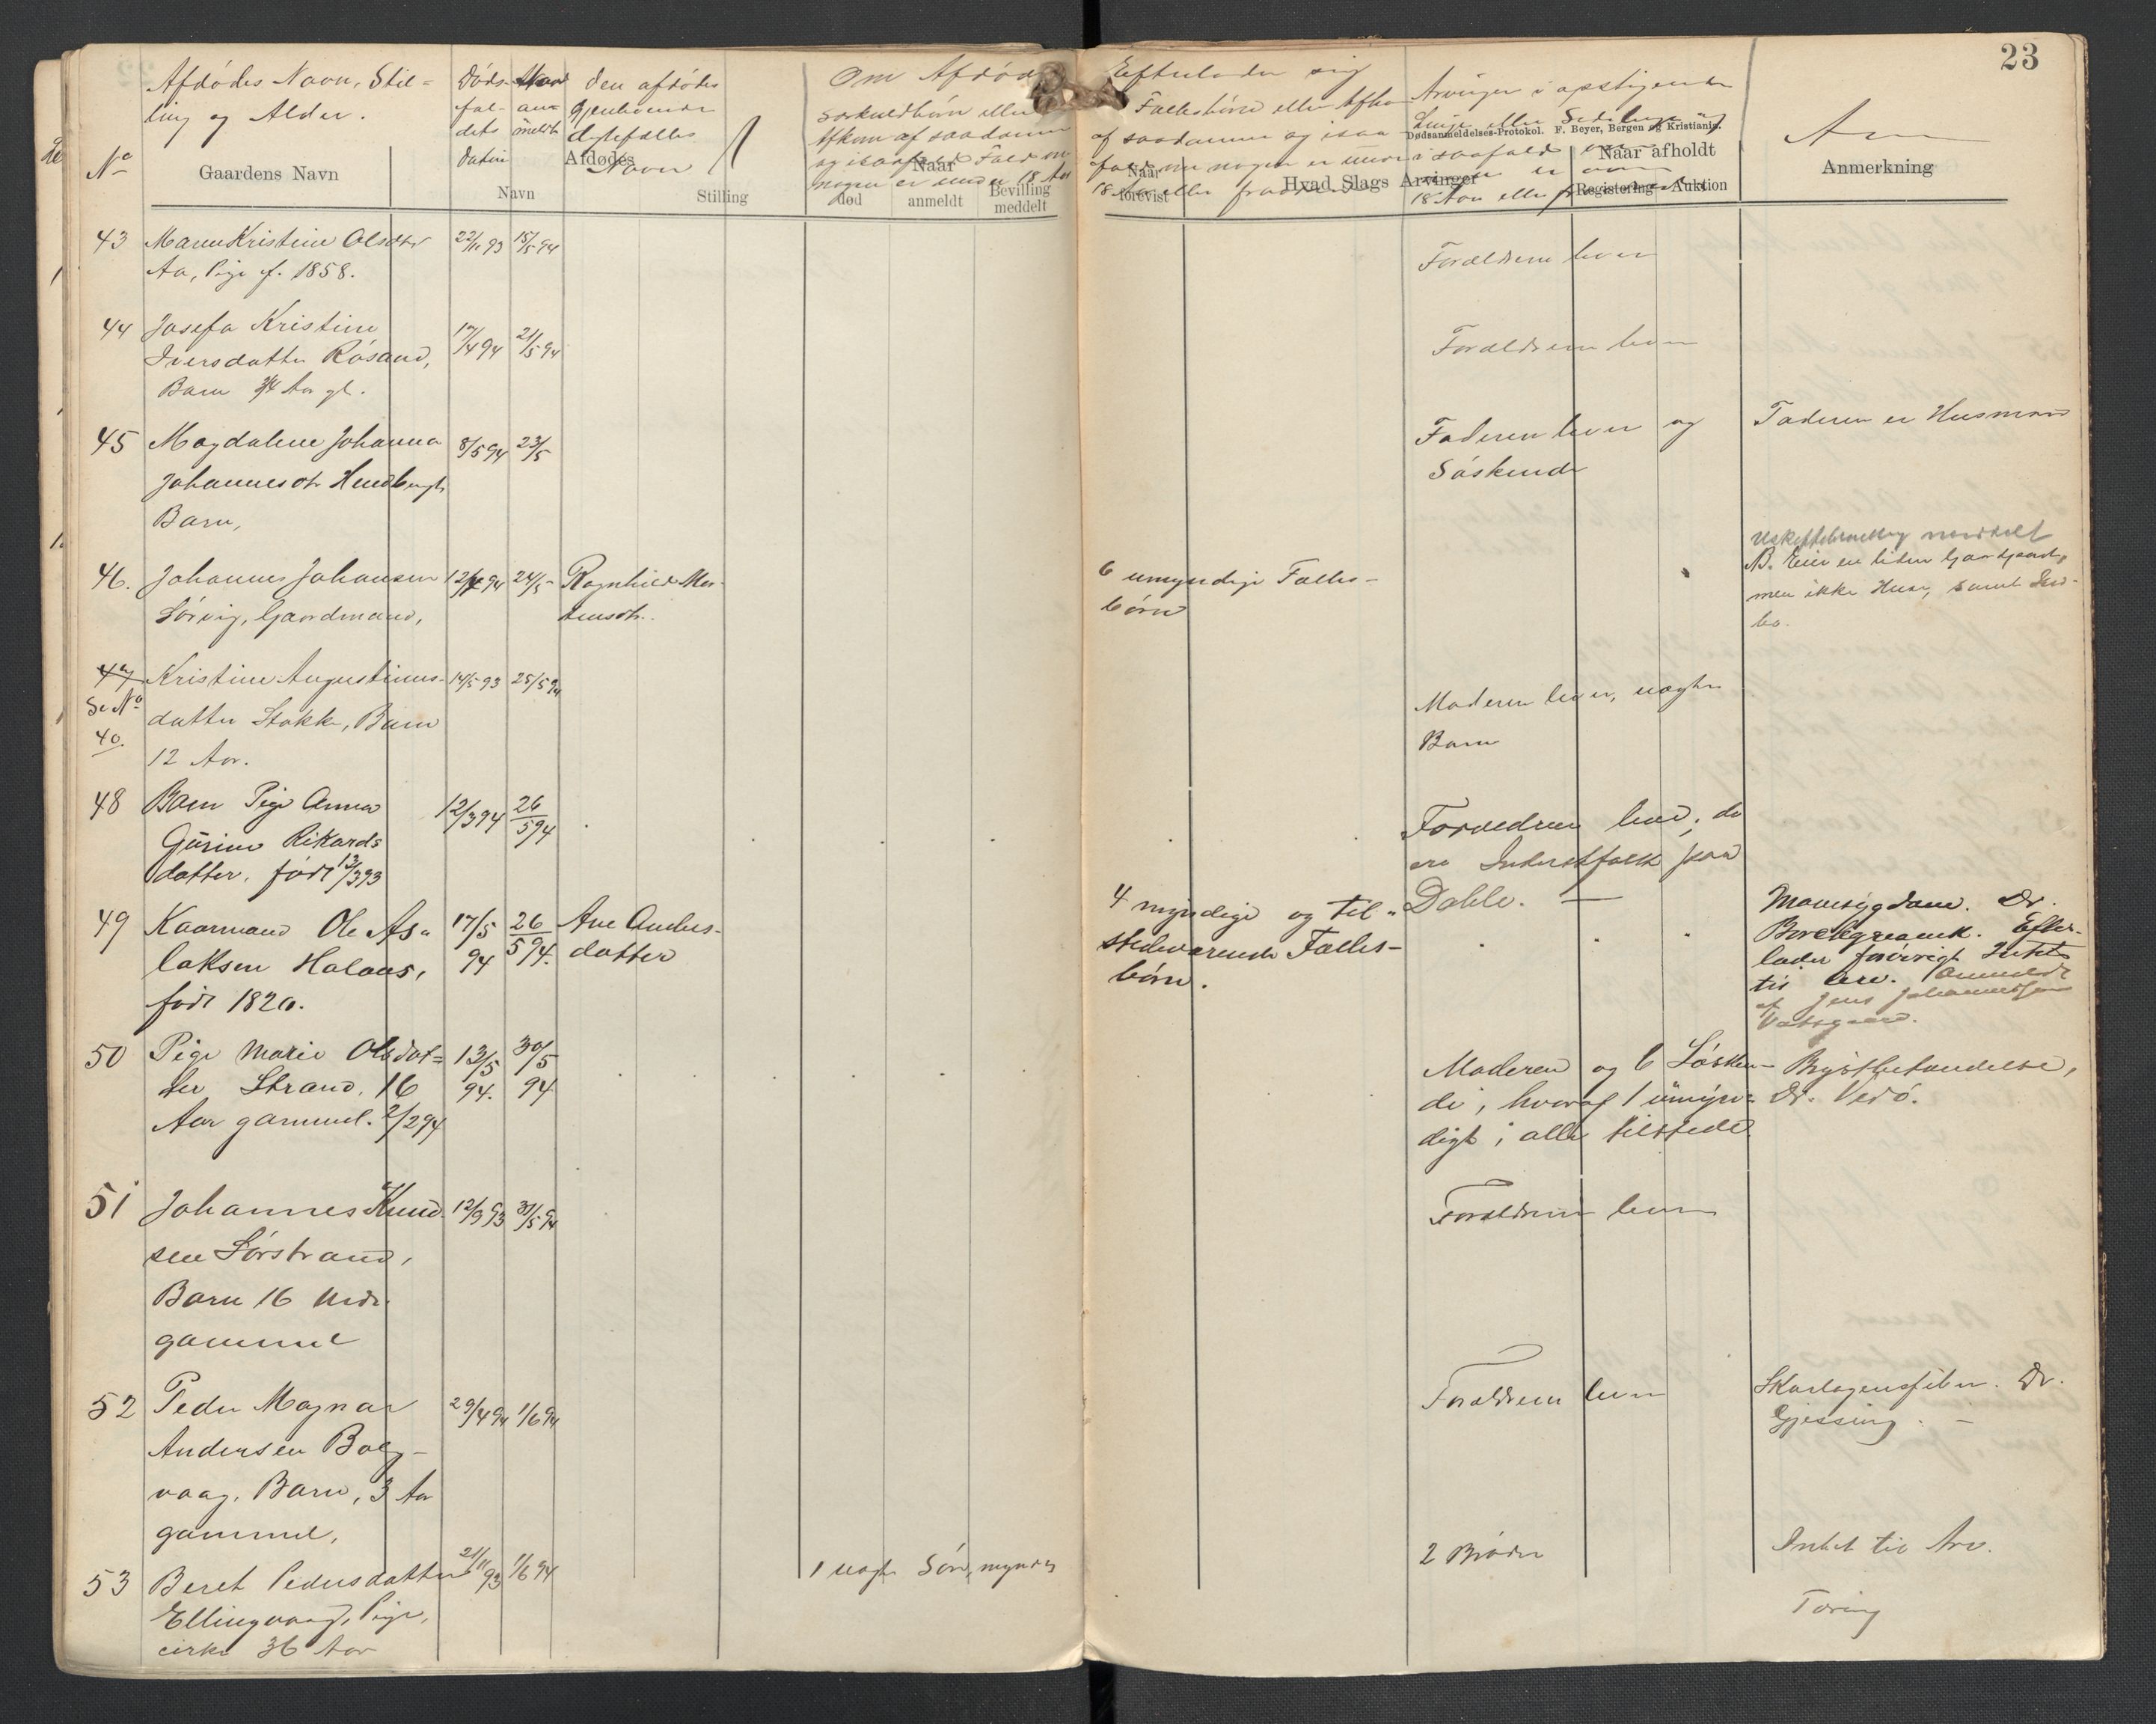 23
Afdødes Navn, Stil=
ling og Alder.
Døds-
fal-
dets
Datum
Naar
an=
meldt
Den afdødes
gjenlevende
Ægtefælles
Navn
Om Afdøde
Særkuldbørn eller
Afkom af saadanne
og isaafald Fald om
nogen er under 18 Aar
Efterlader sig
Fællesbørn eller Afkom
af saadanne og isaa
fald om nogen er under
18 Aar eller
Arvinger i opstigende
Linje eller Sidelinje og
i saafald om
18 Aar eller
Dødsanmeldelses-Protokol. F. Beyer, Bergen og Kristiania.
No
Gaardens Navn
Afdødes
Navn
Stilling
Naar
død
anmeldt
Bevilling
meddelt
Naar
forevist
Hvad Slags Arvinger
Naar afholdt
Registering
Auktion
Anmerkning
43 Maren Kristine Olsdtr 22/11 93 15/5 94
Aa, Pige f. 1858.
Forældrene lever
44 Josefa Kristine 17/4 94 21/5 94
Iversdatter Røsand,
Barn 3/4 Aar gl.
Forældrene lever
45 Magdalene Johanna 8/5 94 23/5
Johannesdtr Hendbergh
Barn,
Faderen lever og
Søskende
Faderen er Husmand
46. Johannes Johansen 12/4 94 24/5 Ragnhild Mor-
Sørvig, Gaardmand, tensdtr.
6 umyndige Fælles-
børn
Uskiftebevilling meddelt
B. Eier en liden Gaardpart,
men ikke Huse, samt Ind-
bo.
47 Kristine Augustinus- 14/5 93 25/5 94
Se No datter Stokke, Barn
40. 12 Aar.
Moderen lever, uægte
Barn
48 Barn Pige Anna 12/3 94 26/5 94
Gurine Rikards
datter, født 13/3 93
Forældrene leve; de
ere Inderstfolk paa
Dahle. —
49 Kaarmand Ole As= 17/5 94 26/5 94. Ane Anders-
laksen Halaas, datter
født 1820.
4 myndige og til=
stedeværende Fælles-
børn.
Mavesygdom. Dr.
Efter-
lader forøvrigt Intet
til Arv. Anmeldt
af Jens Johannessen
50 Pige Marie Olsdat= 13/5 94. 30/5 94
ter Strand. 16
Aar gammel. 2/2 94
Moderen og 6 Søsken-
de, hvoraf 1 umyn=
digt; alle tilstede
Brystbetændelse,
Dr. Vedø.
51 Johannes Knud- 12/9 93 30/5 94
sen Sørstrand,
Barn 16 Mdr.
gammel
Forældrene lever
52 Peder Magnar 29/4 94 1/6 94
Andersen Bolg-
vaag, Barn, 3 Aar
gammel,
Forældrene lever
Skarlagensfeber. Dr.
Gjessing. —
53 Beret Pedersdatter 21/11 93 1/6 94
Ellingvaag, Pige,
cirka 36 Aar
1 uægte Søn, myndig
2 Brødre
Intet til Arv.
Tæring